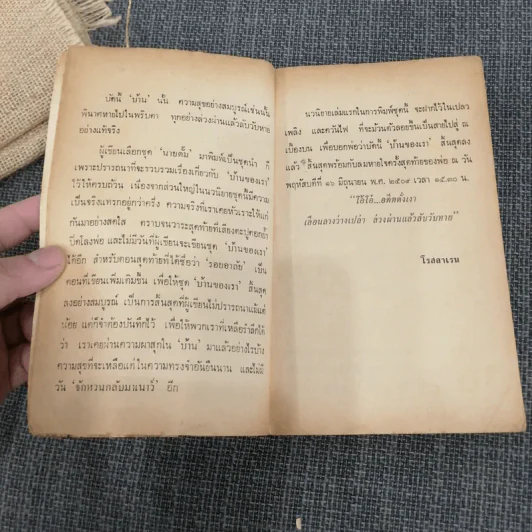 บัดนี้ 'บ้าน' นั้น ความสุขอย่างสมบูรณ์เช่นนั้น
พินาศหายไปในพริบตา ทุกอย่างล่วงผ่านแล้วลับวับหาย
อย่างแท้จริง
ผู้เขียนเลือกชุด 'นายดั้ม' มาพิมพ์เป็นชุดนำ ก็
เพราะปรารถนาที่จะรวบรวมเรื่องเกี่ยวกับ 'บ้านของเรา'
ไว้ให้ครบถ้วน เนื่องจากส่วนใหญ่ในนวนิยายชุดนี้มีความ
เป็นจริงแทรกอยู่กว่าครึ่ง ความจริงที่เราเคยหัวเราะให้แก่
กันมาอย่างสดใส คราบจนวาระสุดท้ายที่เสียงตะปูตอกย้ำ
ปิดโลงพ่อ และไม่มีวันที่ผู้เขียนจะเขียนชุด 'บ้านของเรา'
ได้อีก สำหรับตอนสุดท้ายที่ให้ชื่อว่า 'รอยอาลัย' เป็น
ตอนที่เขียนเพิ่มเติมขึ้น เพื่อให้ชุด 'บ้านของเรา' สิ้นสุด
ลงอย่างสมบูรณ์ เป็นการสิ้นสุดที่ผู้เขียนไม่ปรารถนาแม้แต่
น้อย แต่ก็จำต้องบันทึกไว้ เพื่อให้พวกเราที่เหลือรำลึกได้
ว่า เราเคยผ่านความผาสุกใน 'บ้าน' มาแล้วอย่างไรบ้าง
ความสุขที่จะเหลือแต่ในความทรงจำอันยืนนาน และไม่มี
วัน 'จักหวนกลับมาเนาว์' อีก
นวนิยายเล่มแรกในการพิมพ์ชุดนี้ จะฝากไว้ในเปลว
เพลิง และควันไฟ ที่จะม้วนตัวลอยขึ้นเป็นสายไปสู่ ณ
เบื้องบน เพื่อบอกพ่อว่าบัดนี้ 'บ้านของเรา' สิ้นสุดลง
แล้ว สิ้นสุดพร้อมกับลมหายใจครั้งสุดท้ายของพ่อ ณ วัน
พฤหัสบดีที่ ๑๖ มิถุนายน พ.ศ. ๒๕๐๙ เวลา ๑๕.๓๐ น.
"โอ้โอ้...อดีตตั้งเรา
เลือนลางว่างเปล่า ล่วงผ่านแล้วลับวับหาย"
โรสลาเรน